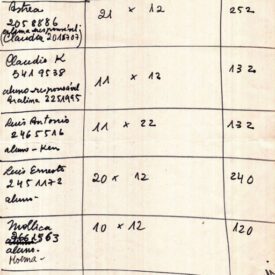 Astrea
2058886
aluna-responsável
(Claudia 2018707)
21 x 12
252
Claudio K
3419538
aluno-responsável
Analina 2251995
11 x 12
132
Luis Antonio
2465516
aluno - Ken
11 x 22
132
Luis Ernesto
2451172
aluno-
20 x 12
240
Mollica
2661963
aluno-
10 x 12
120